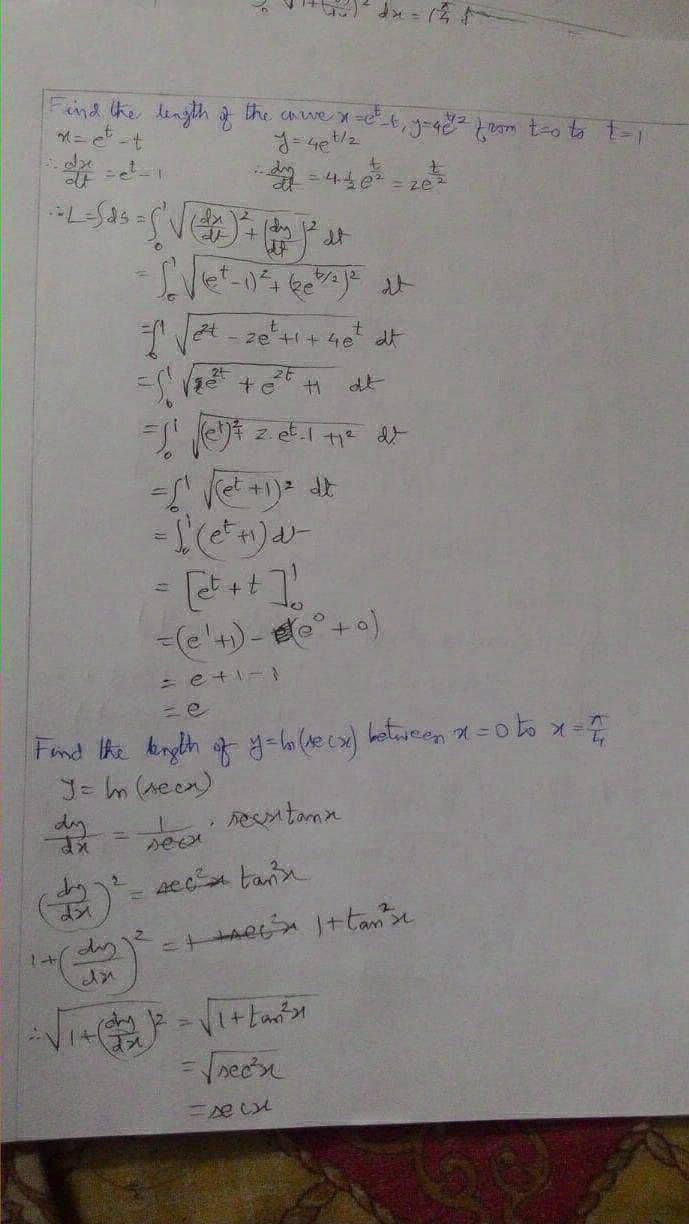 ∫₀ √1+(dy/dx)² dx =
Find the length of the curve x=eᵗ-t, y=4e^(t/2) from t=0 to t=1
x=eᵗ-t y=4e^(t/2)
∴ dx/dt = eᵗ-1 ∴ dy/dt = 4·½e^(t/2) = 2e^(t/2)
∴ L=∫ds = ∫₀¹ √((dx/dt)²+(dy/dt)²) dt
= ∫₀¹ √((eᵗ-1)²+(2e^(t/2))²) dt
= ∫₀¹ √(e²ᵗ-2eᵗ+1+4eᵗ) dt
= ∫₀¹ √(2e²ᵗ+e²ᵗ+1) dt
= ∫₀¹ √((eᵗ)²+2·eᵗ·1+1²) dt
= ∫₀¹ √(eᵗ+1)² dt
= ∫₀¹ (eᵗ+1) dt
= [eᵗ+t]₀¹
= (e¹+1)-(e⁰+0)
= e+1-1
= e
Find the length of y=ln(secx) between x=0 to x=π/4
y=ln(secx)
dy/dx = 1/secx · secxtanx
(dy/dx)² = sec²x tan²x
1+(dy/dx)² = 1+sec²x 1+tan²x
∴ √(1+(dy/dx)²) = √(1+tan²x)
= √(sec²x)
= secx